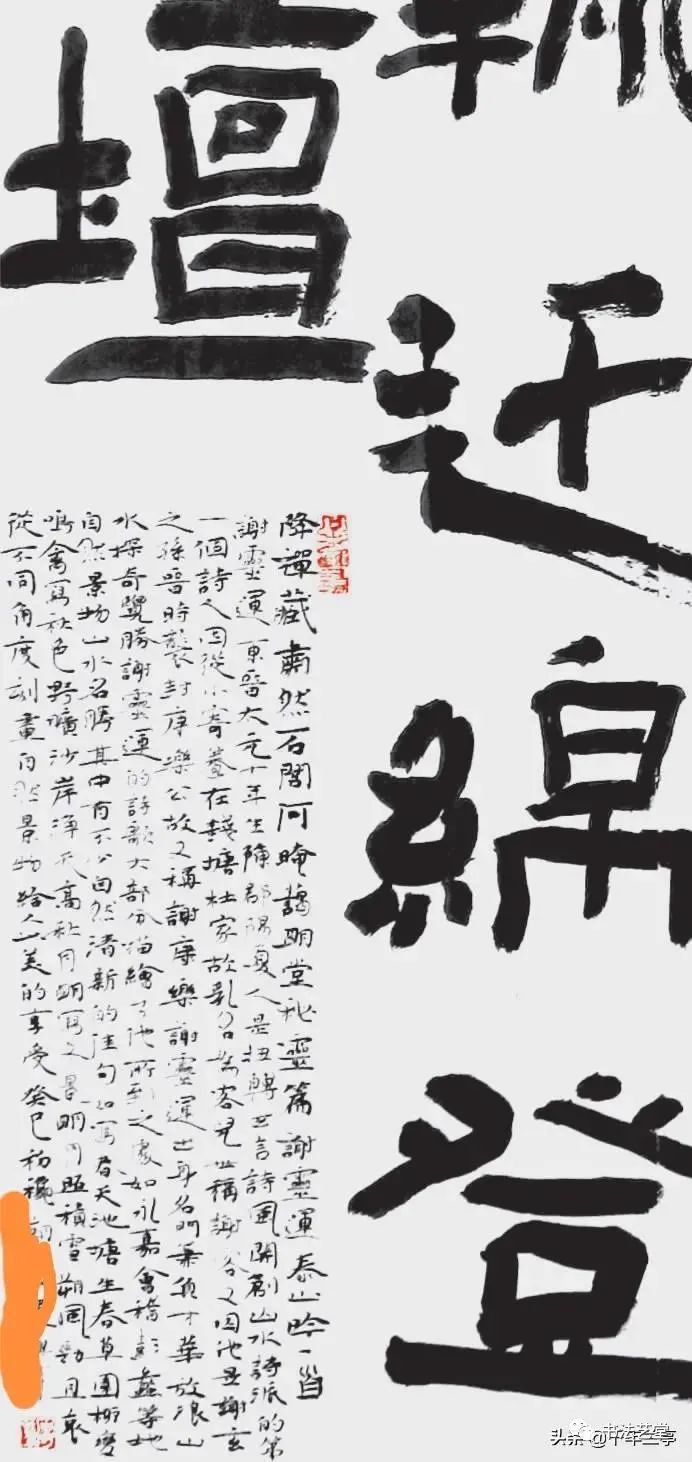 輒迁綿登
壇
降禪藏肅然石閭何晻藹明堂秘靈篇謝靈運泰山吟一首
謝靈運東晉太元十年生陳郡陽夏人是扭轉玄言詩風開創山水詩派的第
一個詩人因從小寄養在錢塘杜家故乳名為客兒世稱謝客又因他是謝玄
之孫晉時襲封康樂公故又稱謝康樂謝靈運出身名門兼負才華放浪山
水探奇覽勝謝靈運的詩歌大部分描繪了他所到之處如永嘉會稽彭蠡等地
自然景物山水名勝其中有不少自然清新的佳句如寫春天池塘生春草園柳變
鳴禽寫秋色野曠沙岸淨天高秋月明寫冬景明月照積雪朔風勁且哀
從不同角度刻畫自然景物給人以美的享受癸巳初穐
头条@千年兰亭